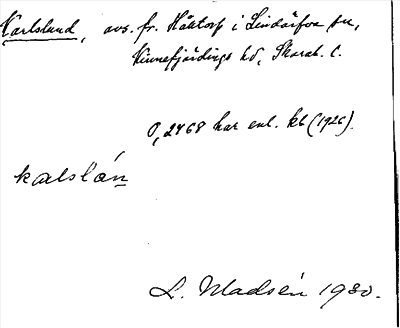 Karlslund, avs. fr. Håktorp i Lindärfva sn,
Kinnefjärdings hd, Skarab. l.
0,2468 har enl. kb (1926).
kalslán
L. Madsén 1930.